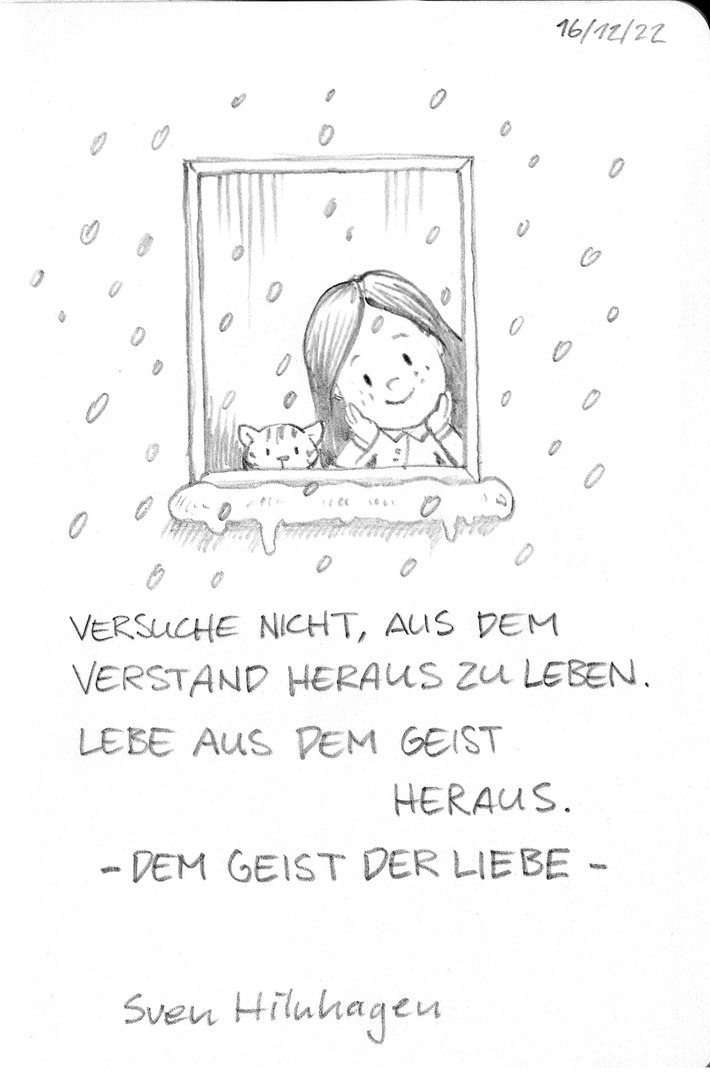 16/12/22
VERSUCHE NICHT, AUS DEM
VERSTAND HERAUS ZU LEBEN.
LEBE AUS DEM GEIST
HERAUS.
- DEM GEIST DER LIEBE -
Sven Hilnhagen